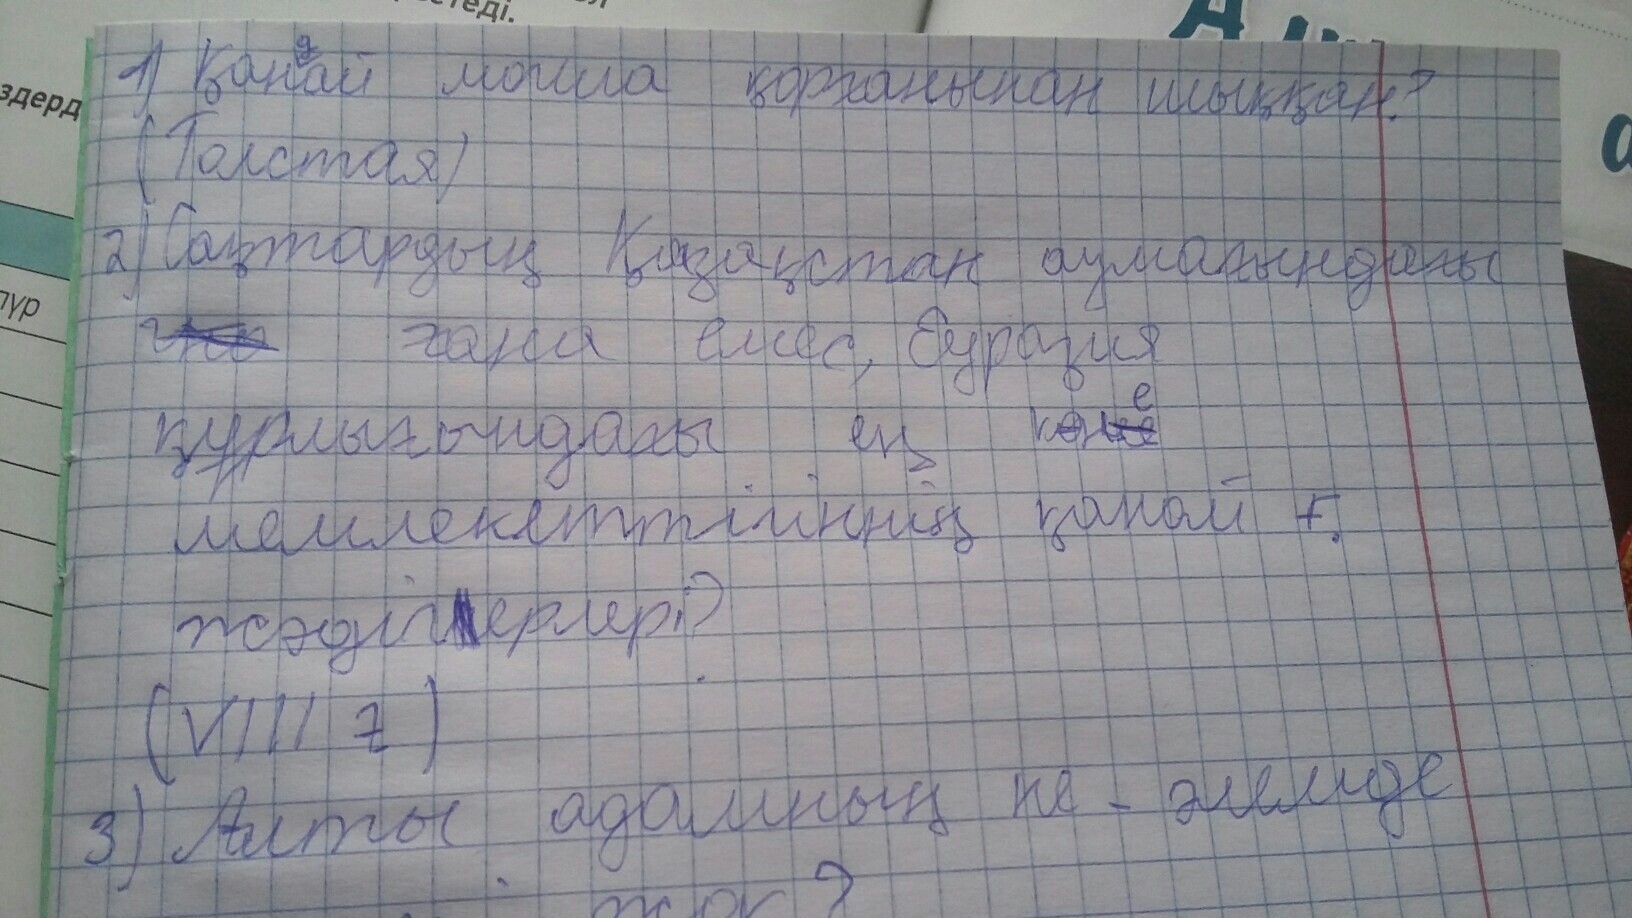 стеді.
здерд
пүр
1) Қандай мола қорғанынан шыққан?
(Толстая)
2) Сақтардың Қазақстан аумағындағы
ғана емес, Еуразия
құрлығындағы ең көне
мемлекеттігіннің қандай т.
жәдігерлері?
(VIII ғ)
3) Алты адамның не - әлемде
жоқ?